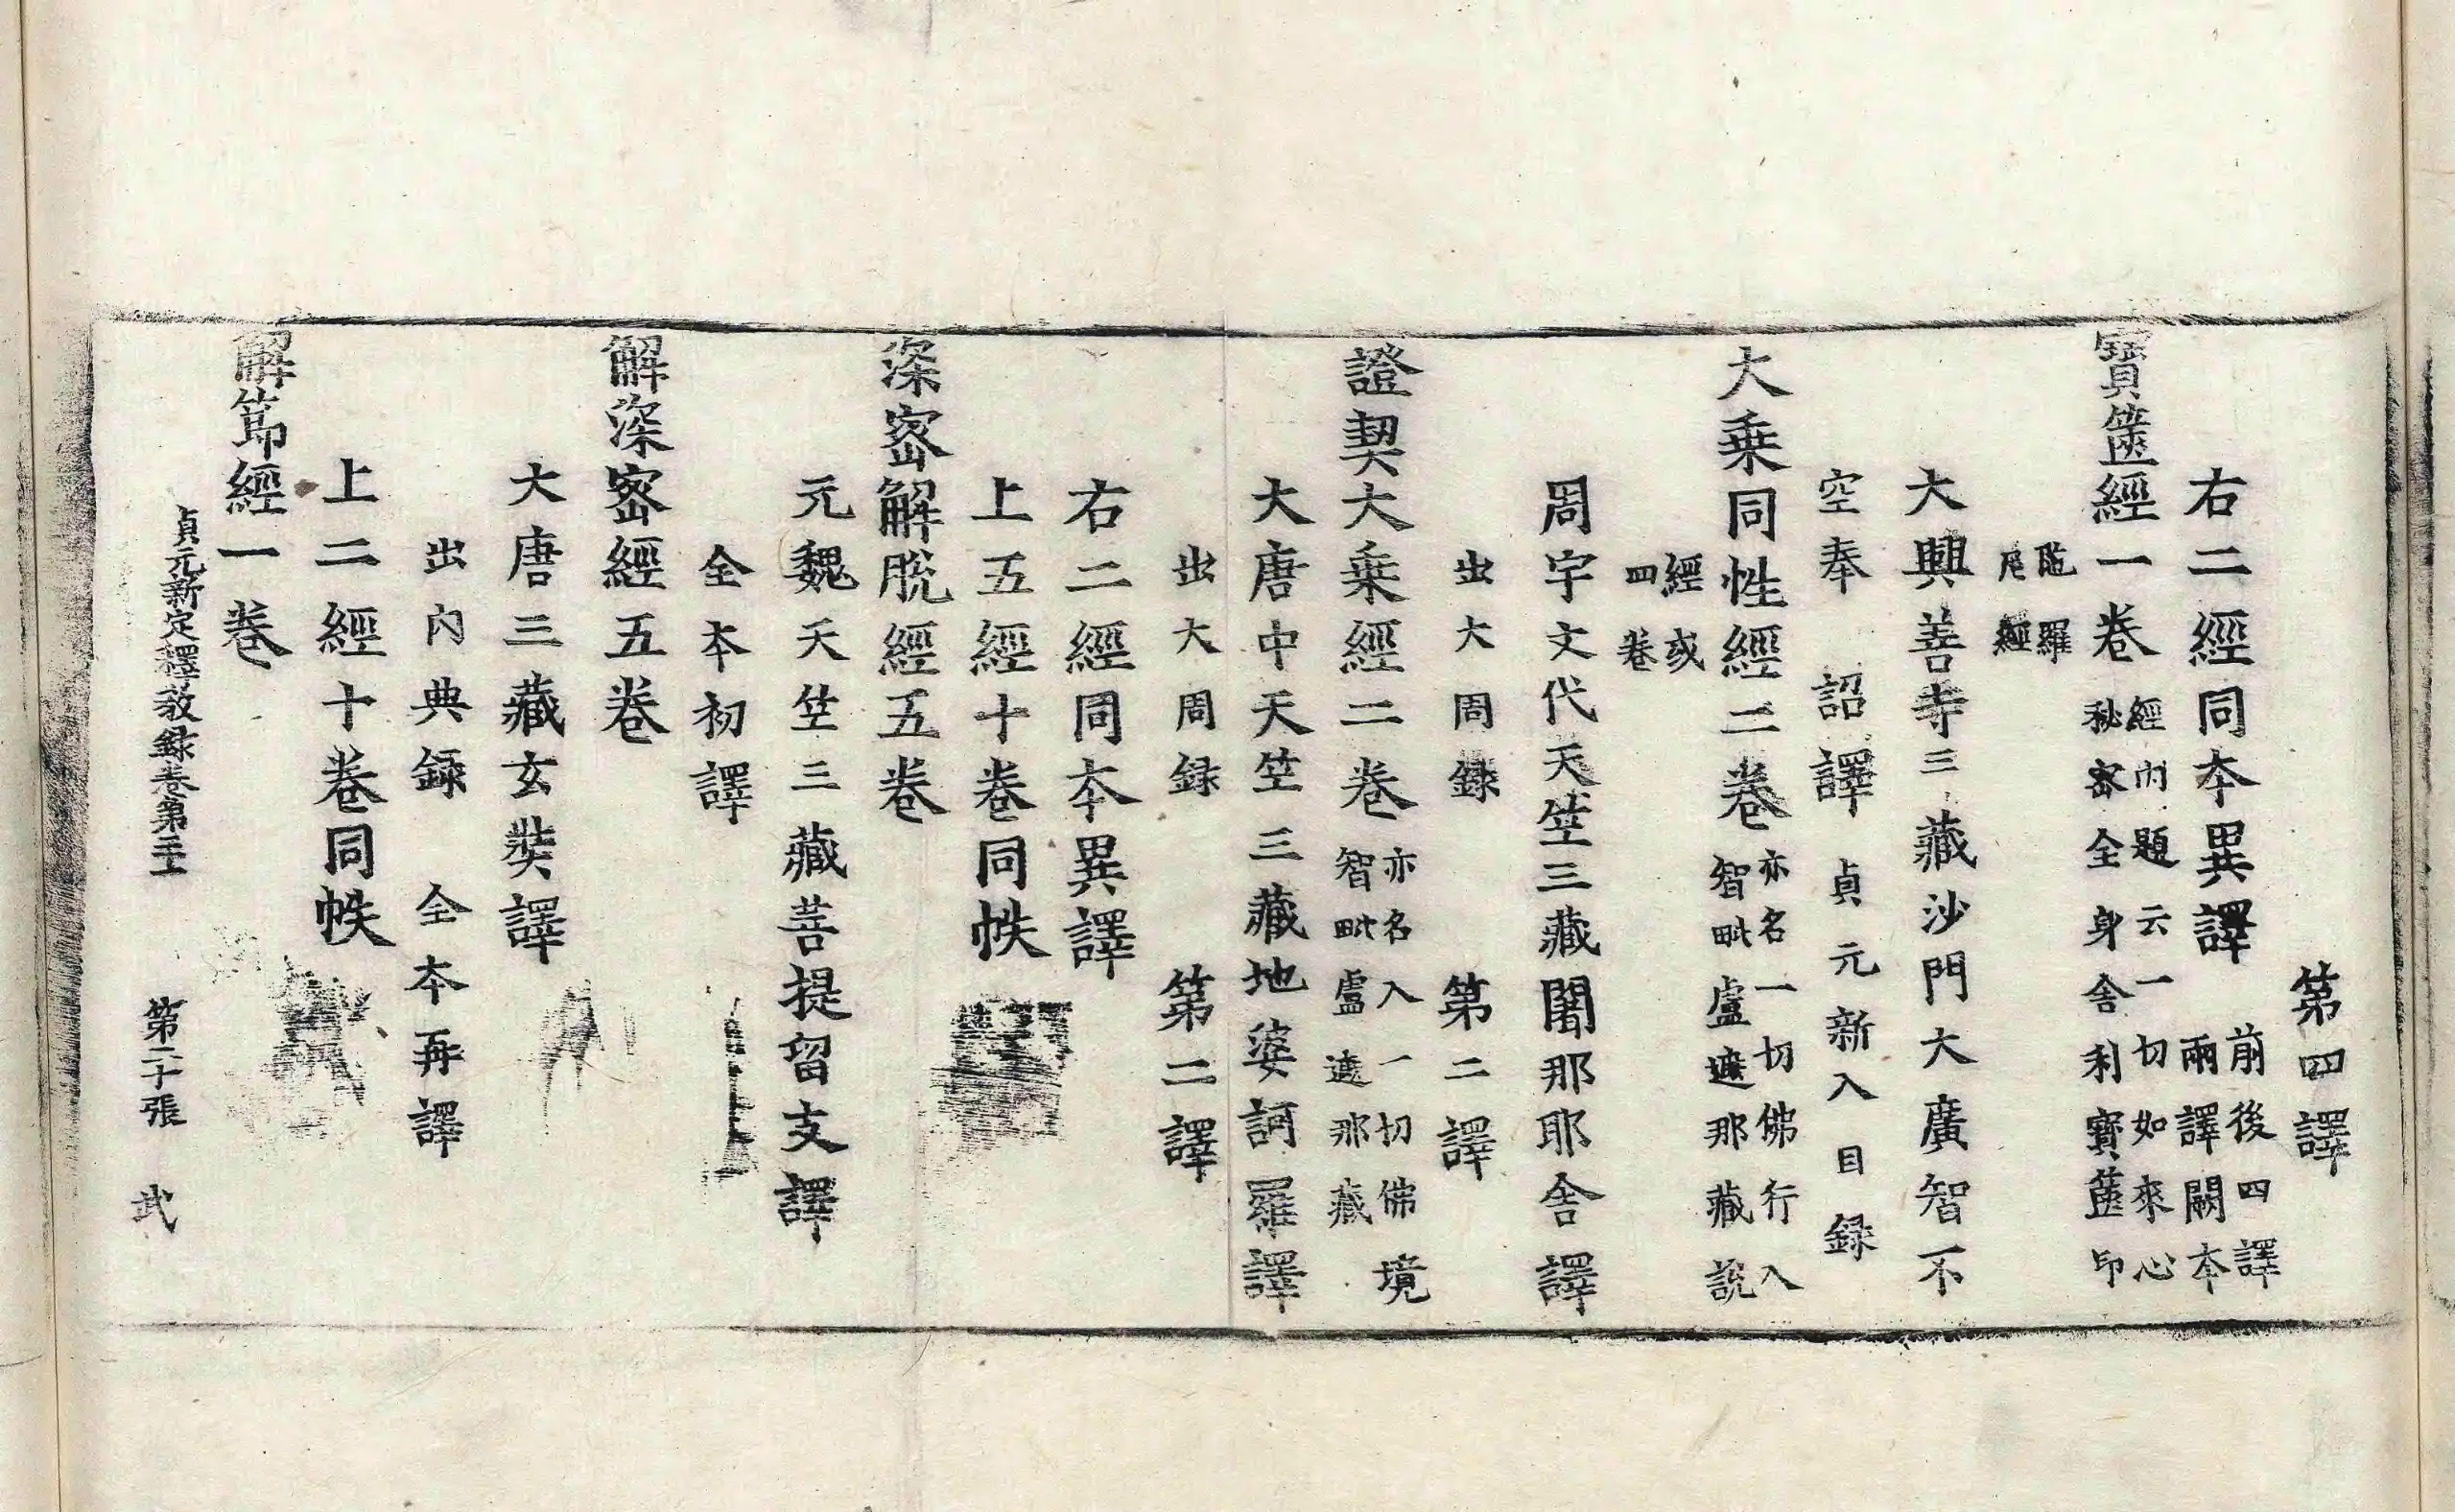 第四譯
右二經同本異譯前後四譯兩譯闕本
寶篋經一卷經內題云一切如來心秘密全身舍利寶篋印
陁羅尼經
大興善寺三藏沙門大廣智不
空奉 詔譯貞元新入目録
大乗同性經二卷亦名一切佛行入智毗盧遮那藏說
經或四卷
周宇文代天竺三藏闍那耶舍譯
出大周録 第二譯
證契大乗經二卷亦名入一切佛境智毗盧遮那藏
大唐中天竺三藏地婆訶羅譯
出大周録 第二譯
右二經同本異譯
上五經十卷同帙
深密解脫經五卷
元魏天竺三藏菩提留支譯
全本初譯
解深密經五卷
大唐三藏玄奘譯
出內典録 全本再譯
上二經十卷同帙
解節經一卷
貞元新定釋教録卷第二十 第二十張 武